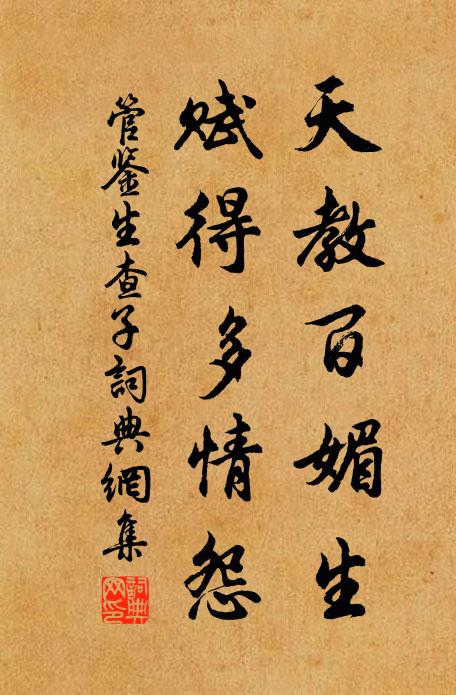 天教百媚生
赋得多情怨
管鉴生查子詞典網集
詞典网印